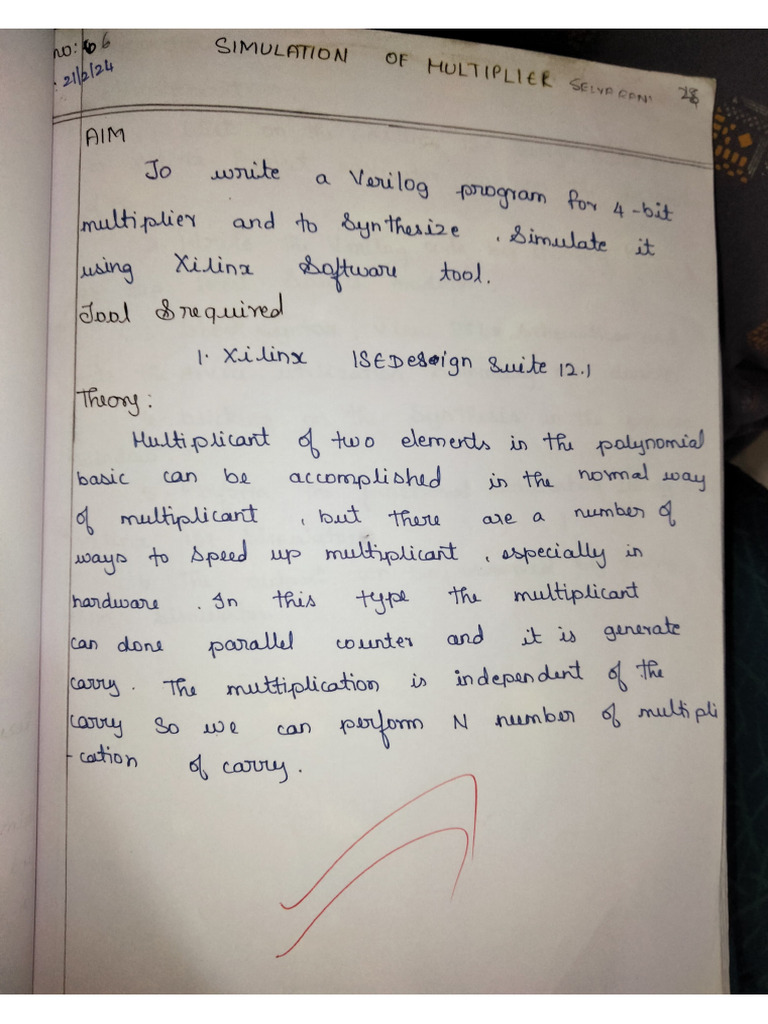 no: 6
: 21/2/24
SIMULATION OF MULTIPLIER SELVARANI 28
AIM
To write a Verilog program for 4-bit
multiplier and to Synthesize , Simulate it
using Xilinx Software tool.
Tool Srequired
1. Xilinx ISEDesign Suite 12.1
Theory:
Multiplicant of two elements in the polynomial
basic can be accomplished in the normal way
of multiplicant , but there are a number of
ways to speed up multiplicant , especially in
hardware . In this type the multiplicant
can done parallel counter and it is generate
carry. The multtiplication is independent of the
carry so we can perform N number of multipli
-cation of carry.